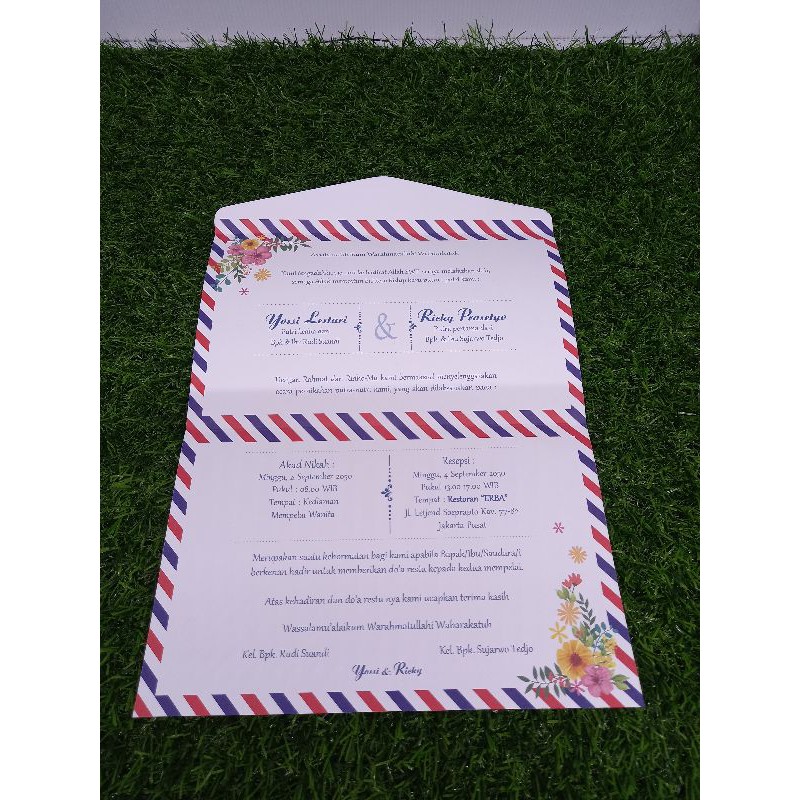 Yossi Lestari
&
Ricky Prasetyo
Bpk. & Ibu Rudi
Bpk. & Ibu Sujarwo Tedjo
Dengan Rahmat dan kami bermaksud menyelenggarakan
acara pernikahan putra-putri kami, yang akan dilaksanakan pada :
Akad Nikah :
Minggu, 4 September 2030
Pukul : 08.00 WIB
Tempat : Kediaman
Mempelai Wanita
Resepsi :
Minggu, 4 September 2030
Pukul 13.00-17.00 WIB
Tempat : Restoran "ERBA"
Jl. Letjend Soeprapto Kav. 77-80
Jakarta Pusat
Merupakan suatu kehormatan bagi kami apabila Bapak/Ibu/Saudara/i
berkenan hadir untuk memberikan do'a restu kepada kedua mempelai.
Atas kehadiran dan do'a restu nya kami ucapkan terima kasih
Wassalamu'alaikum Warahmatullahi Wabarakatuh
Kel. Bpk. Rudi
Kel. Bpk. Sujarwo Tedjo
Yossi & Ricky